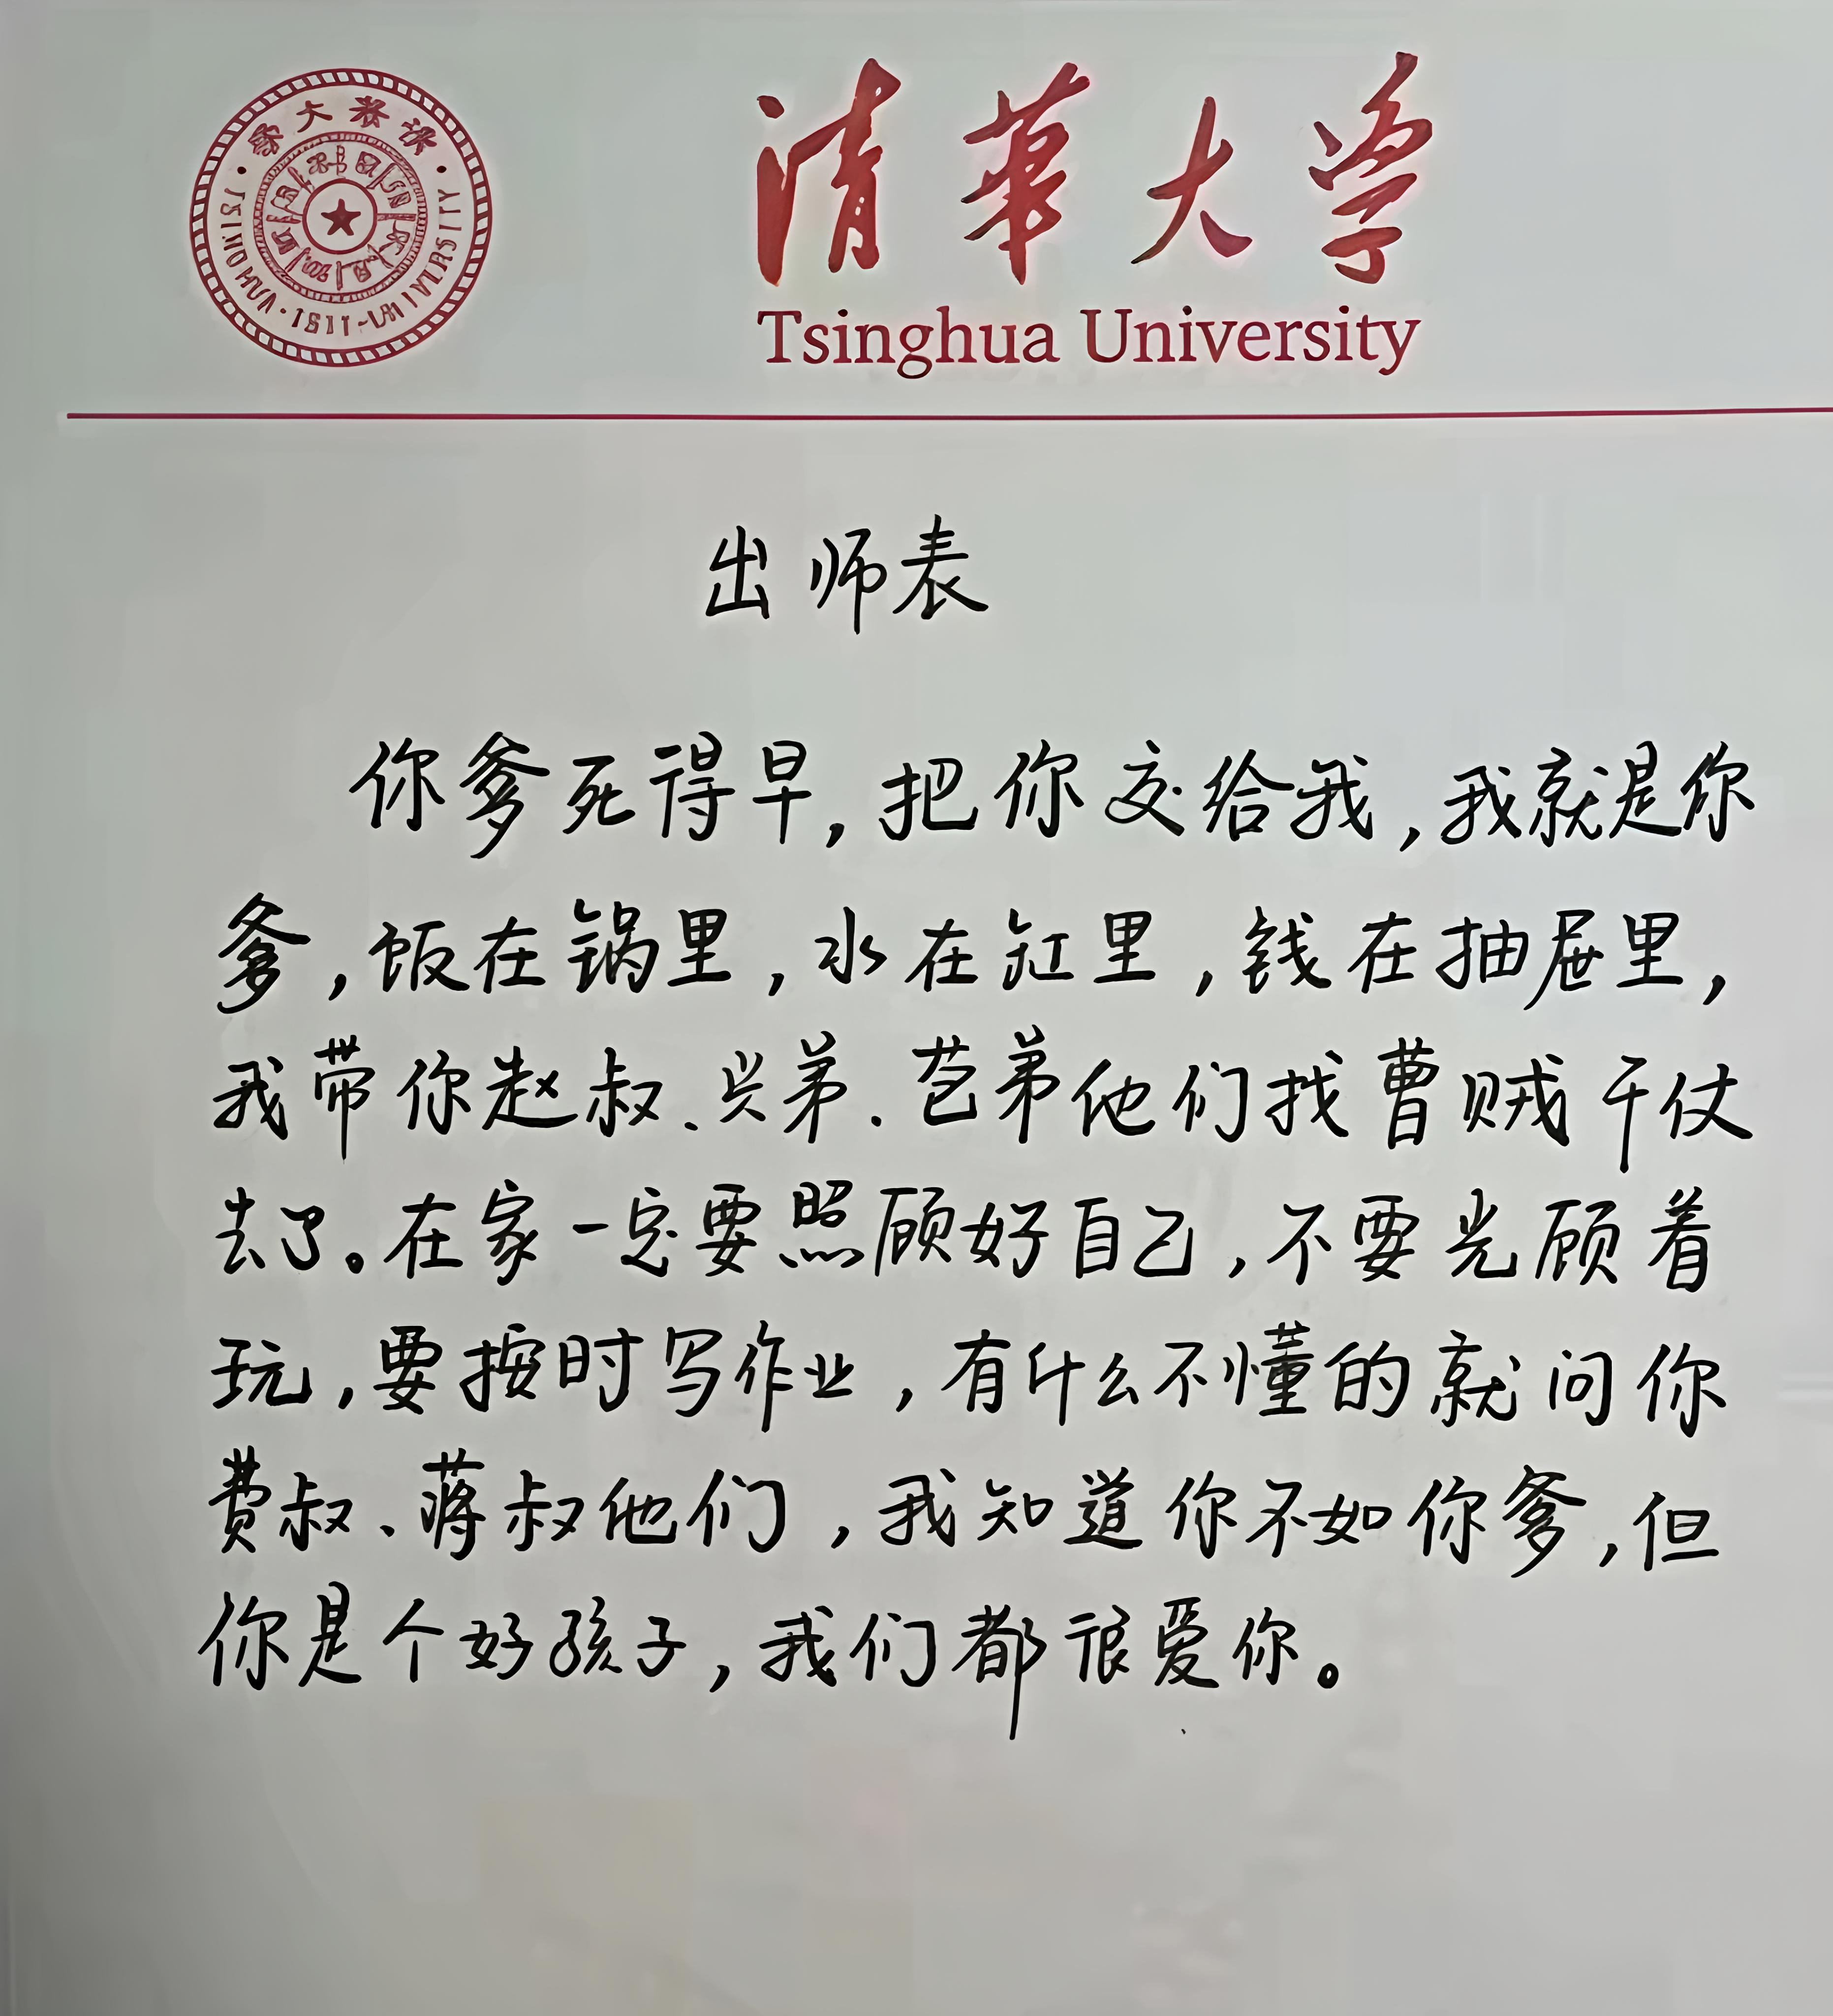 清華大学
Tsinghua University
出师表
你爹死得早,把你交给我,我就是你
爹,饭在锅里,水在缸里,钱在抽屉里,
我带你赵叔、兴弟、苞弟他们找曹贼干仗
去了。在家一定要照顾好自己,不要光顾着
玩,要按时写作业,有什么不懂的就问你
费叔、蒋叔他们,我知道你不如你爹,但
你是个好孩子,我们都很爱你。